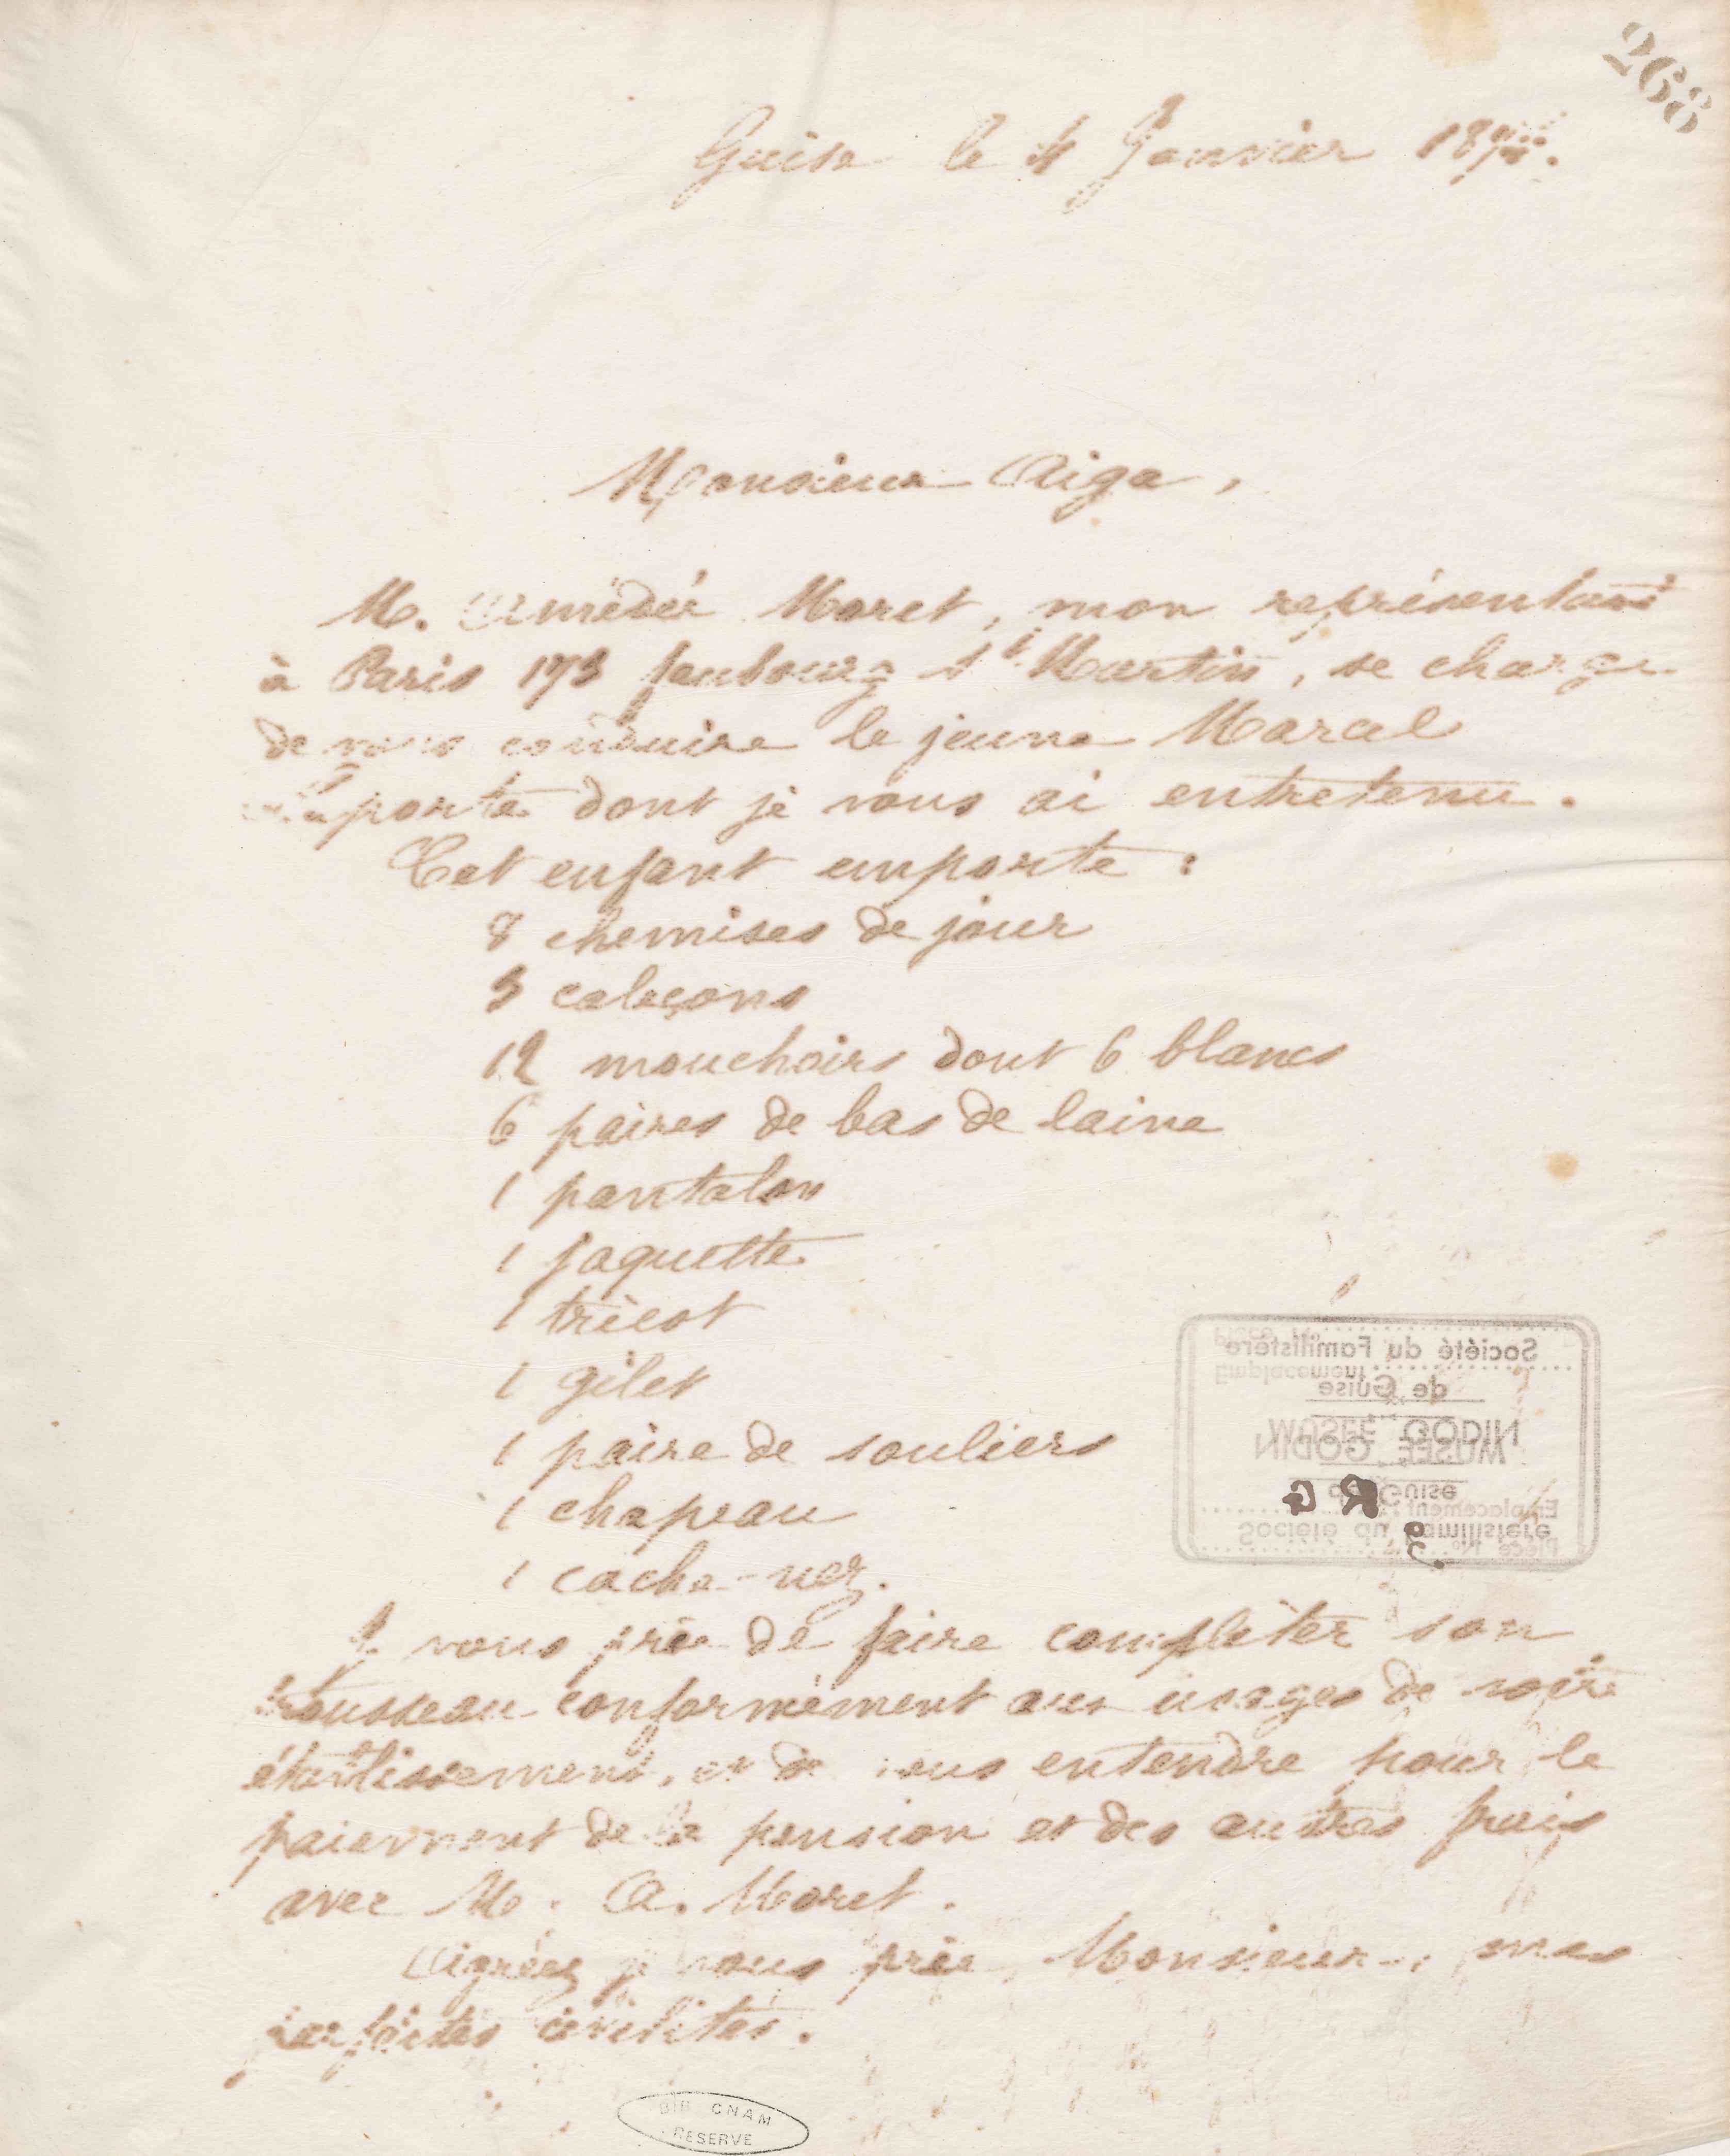 268
Guise le 4 Janvier 187
Monsieur Aiga,
M. Amédée Moret, mon représentant
à Paris 173 faubourg St Martin, se charge
de vous conduire le jeune Marcel
dont je vous ai entretenu.
Cet enfant emporte :
8 chemises de jour
3 caleçons
12 mouchoirs dont 6 blancs
6 paires de bas de laine
1 pantalon
1 jaquette
1 tricot
1 gilet
1 paire de souliers
1 chapeau
1 cache-nez.
Je vous prie de faire compléter son
trousseau conformément aux usages de votre
établissement, et de vous entendre pour le
paiement de la pension et des autres frais
avec M. A. Moret.
Agréez je vous prie, Monsieur, mes
parfaites civilités.
Société du Familistère
de Guise
MUSÉE GODIN
BIB CNAM
RESERVE